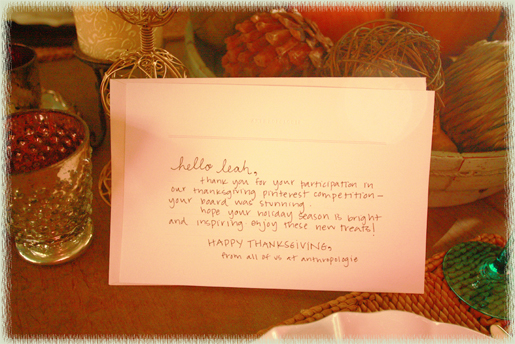 hello leah,
thank you for your participation in
our thanksgiving pinterest competition -
your board was stunning.
hope your holiday season is bright
and inspiring enjoy these new treats!
HAPPY THANKSGIVING,
from all of us at anthropologie